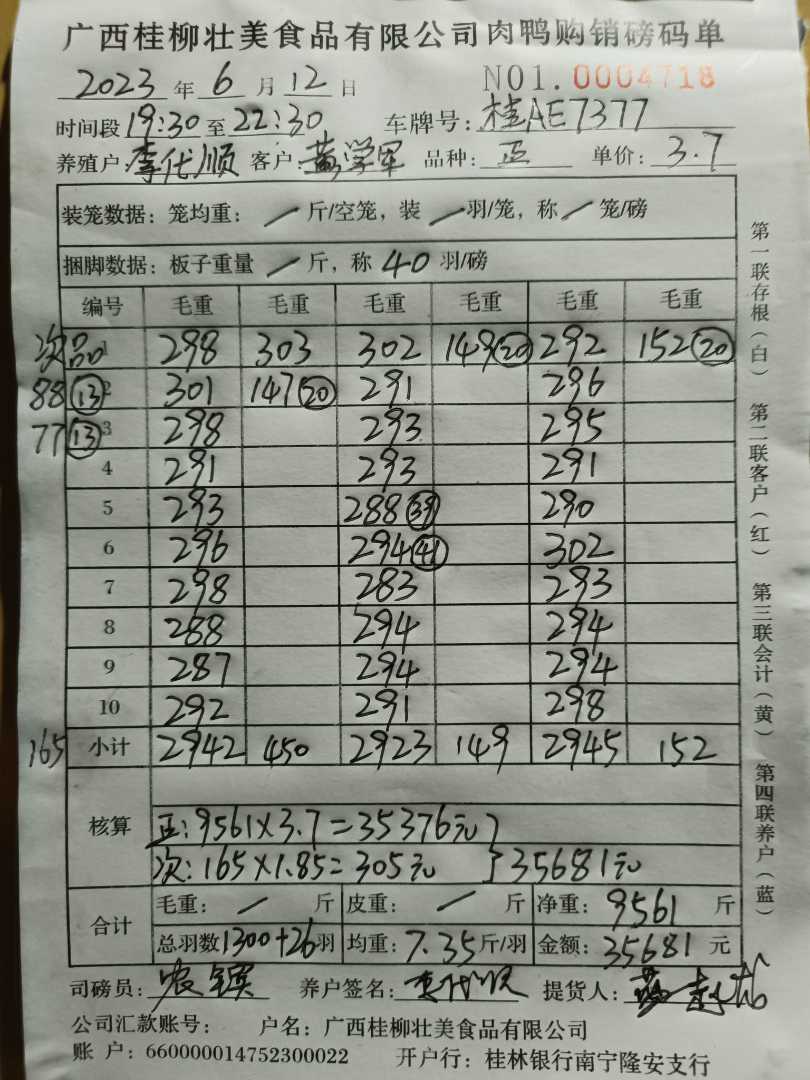 广西桂柳壮美食品有限公司肉鸭购销磅码单
2023 年 6 月 12 日 NO1.0004718
时间段 19:30 至 22:30 车牌号: 桂AE7377
养殖户: 李代顺 客户: 黄学军 品种: 正 单价: 3.7
装笼数据: 笼均重: / 斤/空笼, 装 / 羽/笼, 称 / 笼/磅
捆脚数据: 板子重量 / 斤, 称 40 羽/磅
编号 毛重 毛重 毛重 毛重 毛重 毛重
次品 1 298 303 302 149 20 292 152 20
88 13 2 301 147 20 291 296
77 13 3 298 293 295
4 291 293 291
5 293 288 39 290
6 296 294 41 302
7 298 283 293
8 288 294 294
9 287 294 294
10 292 291 298
165 小计 2942 450 2923 149 2945 152
核算
正: 9561×3.7=35376元
次: 165×1.85=305元 } 35681元
合计 毛重: / 斤 皮重: / 斤 净重: 9561 斤
总羽数 1300+26 羽 均重: 7.35 斤/羽 金额: 35681 元
司磅员: 养户签名: 李代顺 提货人:
公司汇款账号: 户名: 广西桂柳壮美食品有限公司
账 户: 660000014752300022 开户行: 桂林银行南宁隆安支行
第一联存根(白) 第二联客户(红) 第三联会计(黄) 第四联养户(蓝)